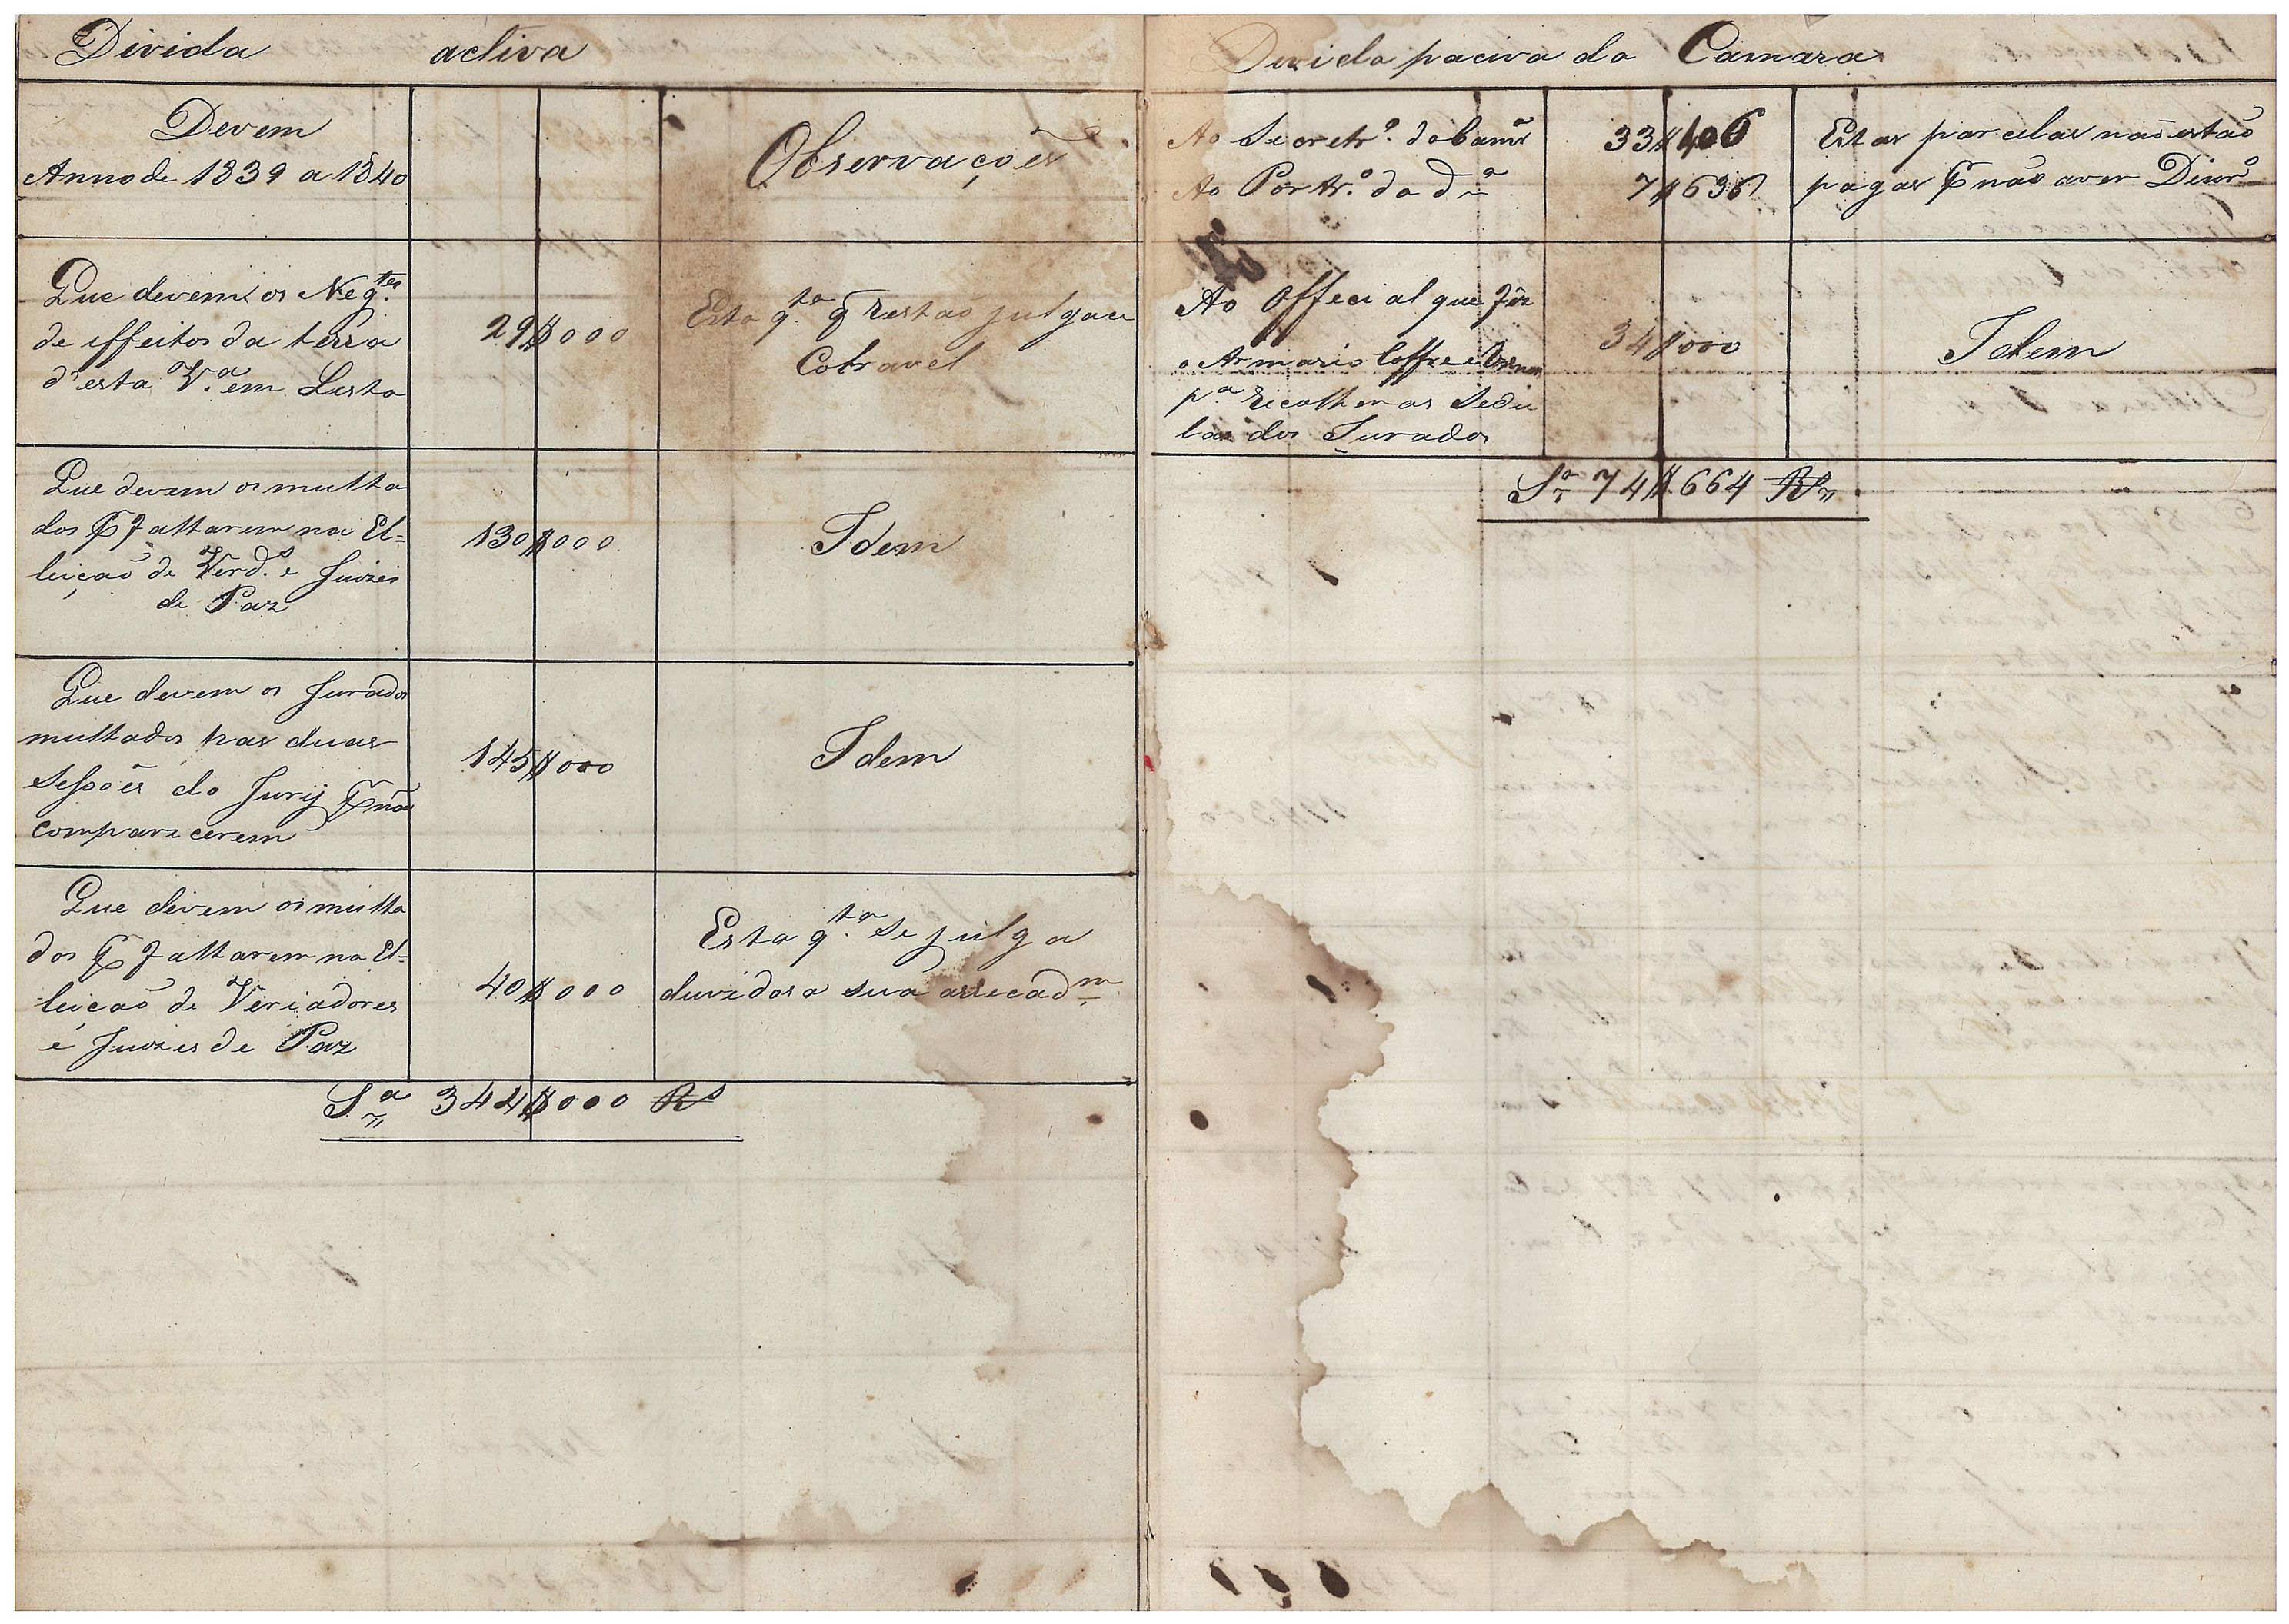 Divida activa
Devem
Anno de 1839 a 1840
Observações
Que devem os Neg.tes
de effeitos da terra
d'esta V.a em Lista
29$000
Esta q.ta q
Cobravel
Que devem os multa
dos q faltarem na El=
leição de Verd.s e Juizes
de Paz
130$000
Idem
Que devem os Jurados
multados nas duas
Sessões do Jury q não
comparecerem
145$000
Idem
Que devem os multa
dos q faltarem na El=
leição de Veriadores
e Juizes de Paz
40$000
Esta q.ta se julga
duvidosa sua arrecad.m
S.a 344$000 Rs
Divida paciva da Camara
Ao Secretr.o da Camr.a
33$406
Estas parcelas não estão
Ao Portr.o da d.a
7$636
pagas q não aver Dinr.o
Ao Offecial que fêz
o Armario Coffre e
p.a recolher as Sedu
las dos Jurados
34$000
Idem
S.a 74$664 Rs